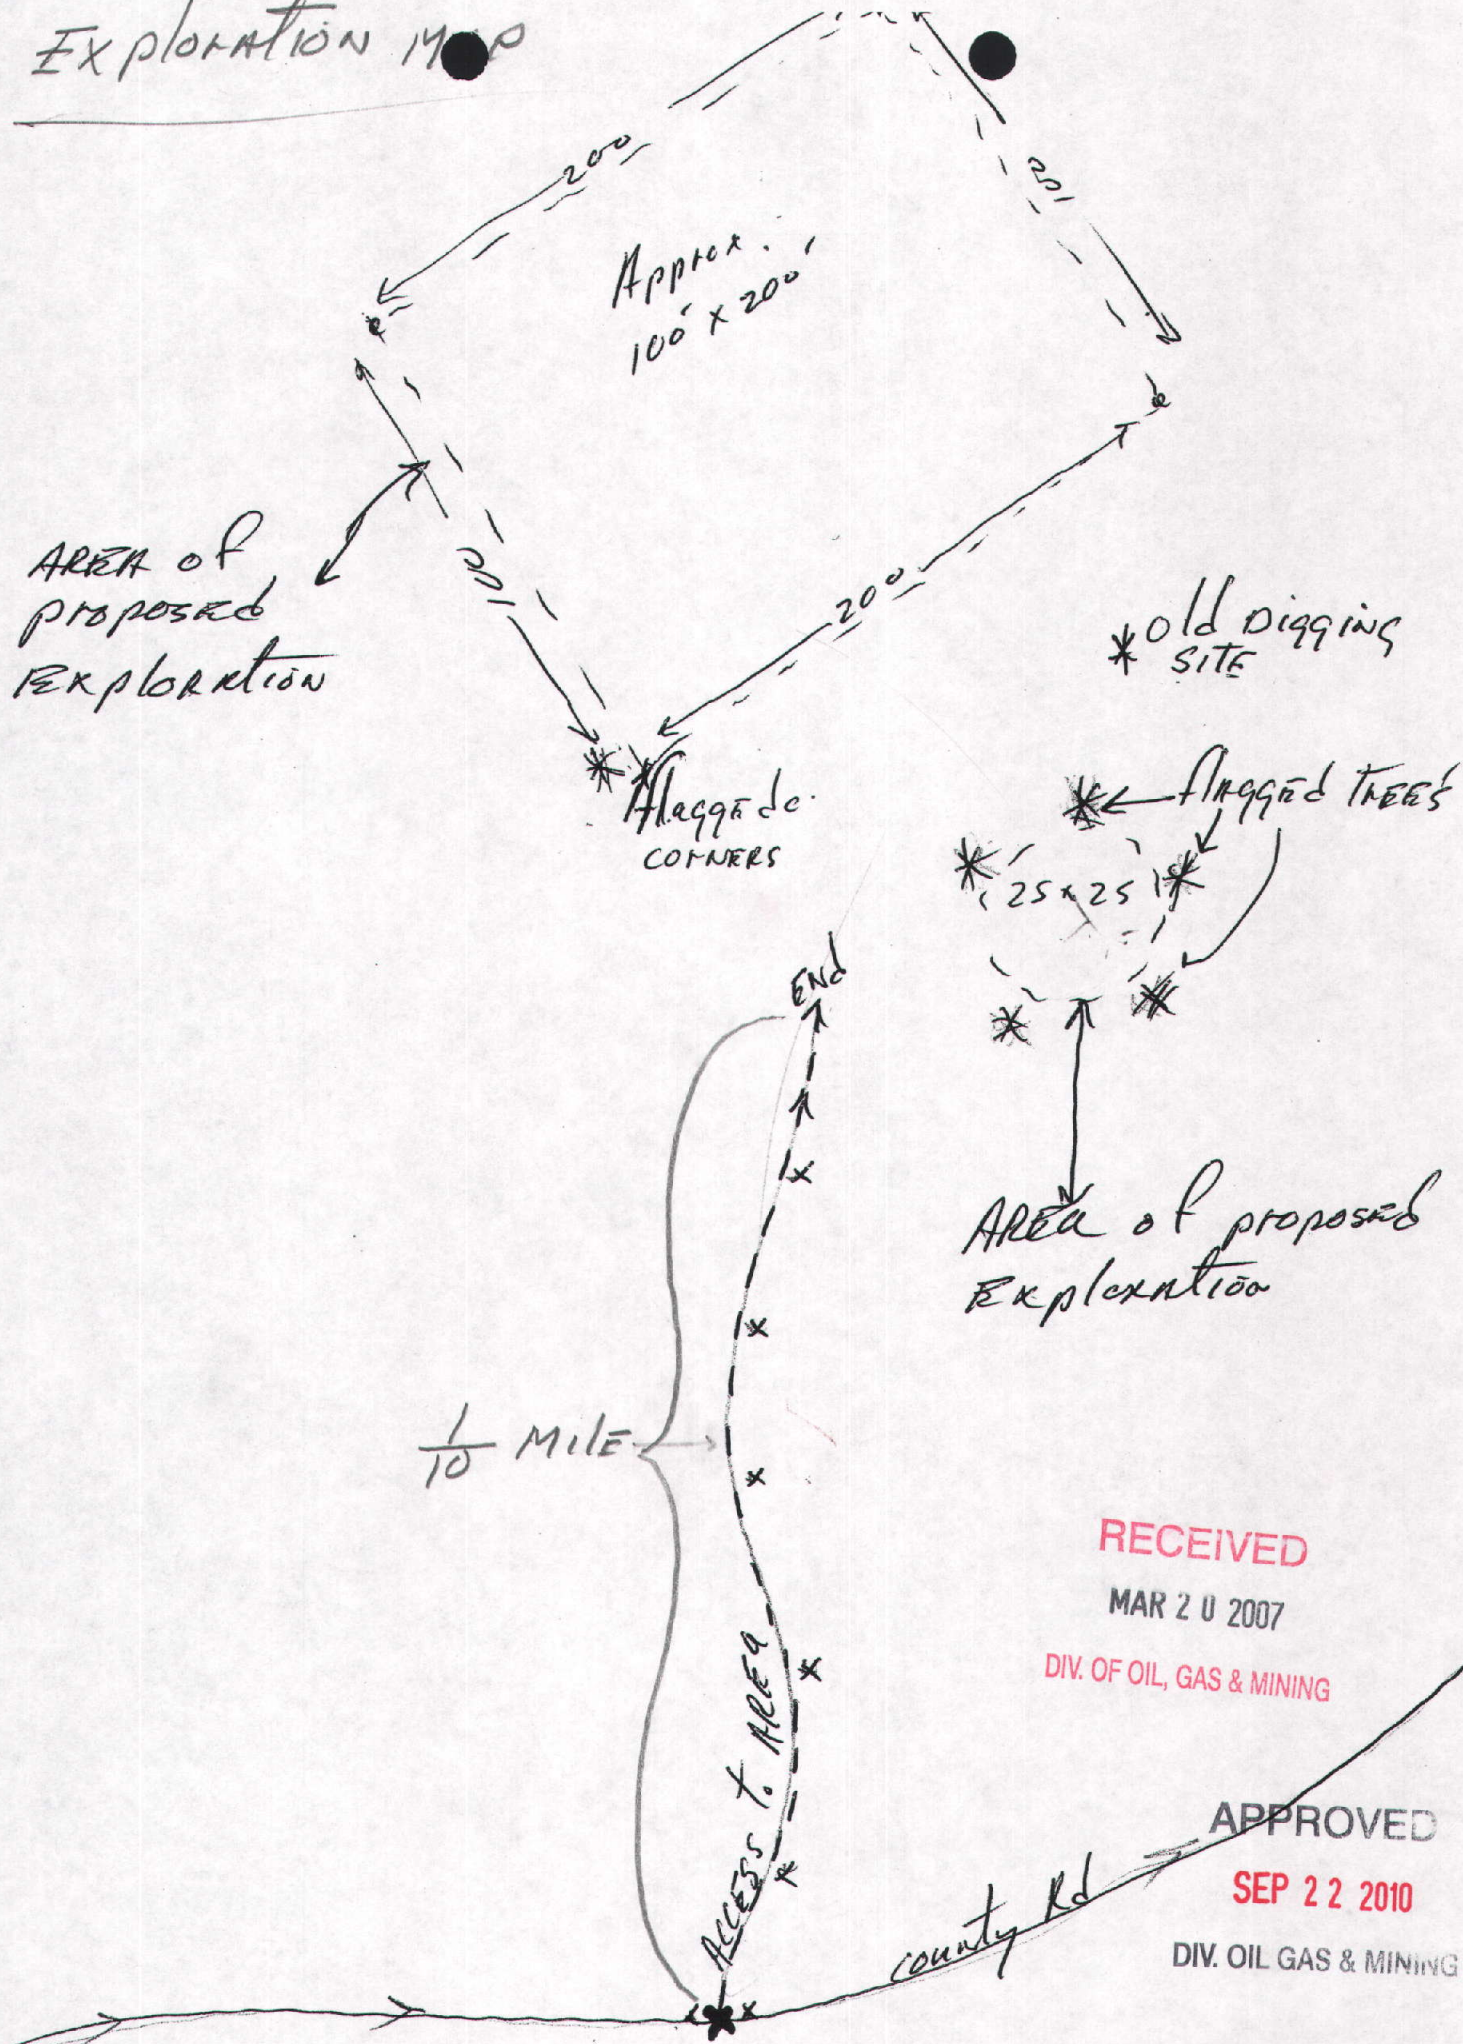 Exploration Map
200
100
Approx.
100' x 200'
AREA of
proposed
Exploration
100
200
Old Digging
SITE
flagged
corners
flagged trees
25 x 25
End
AREA of proposed
Exploration
1/10 MILE
ACCESS to AREA
RECEIVED
MAR 20 2007
DIV. OF OIL, GAS & MINING
county Rd
APPROVED
SEP 22 2010
DIV. OIL GAS & MINING